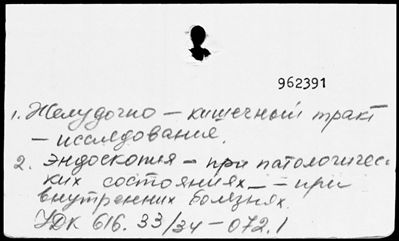 962391
1. Желудочно – кишечный тракт
– исследование.
2. Эндоскопия – при патологичес-
ких состояниях – – при
внутренних болезнях.
УДК 616.33/34–072.1